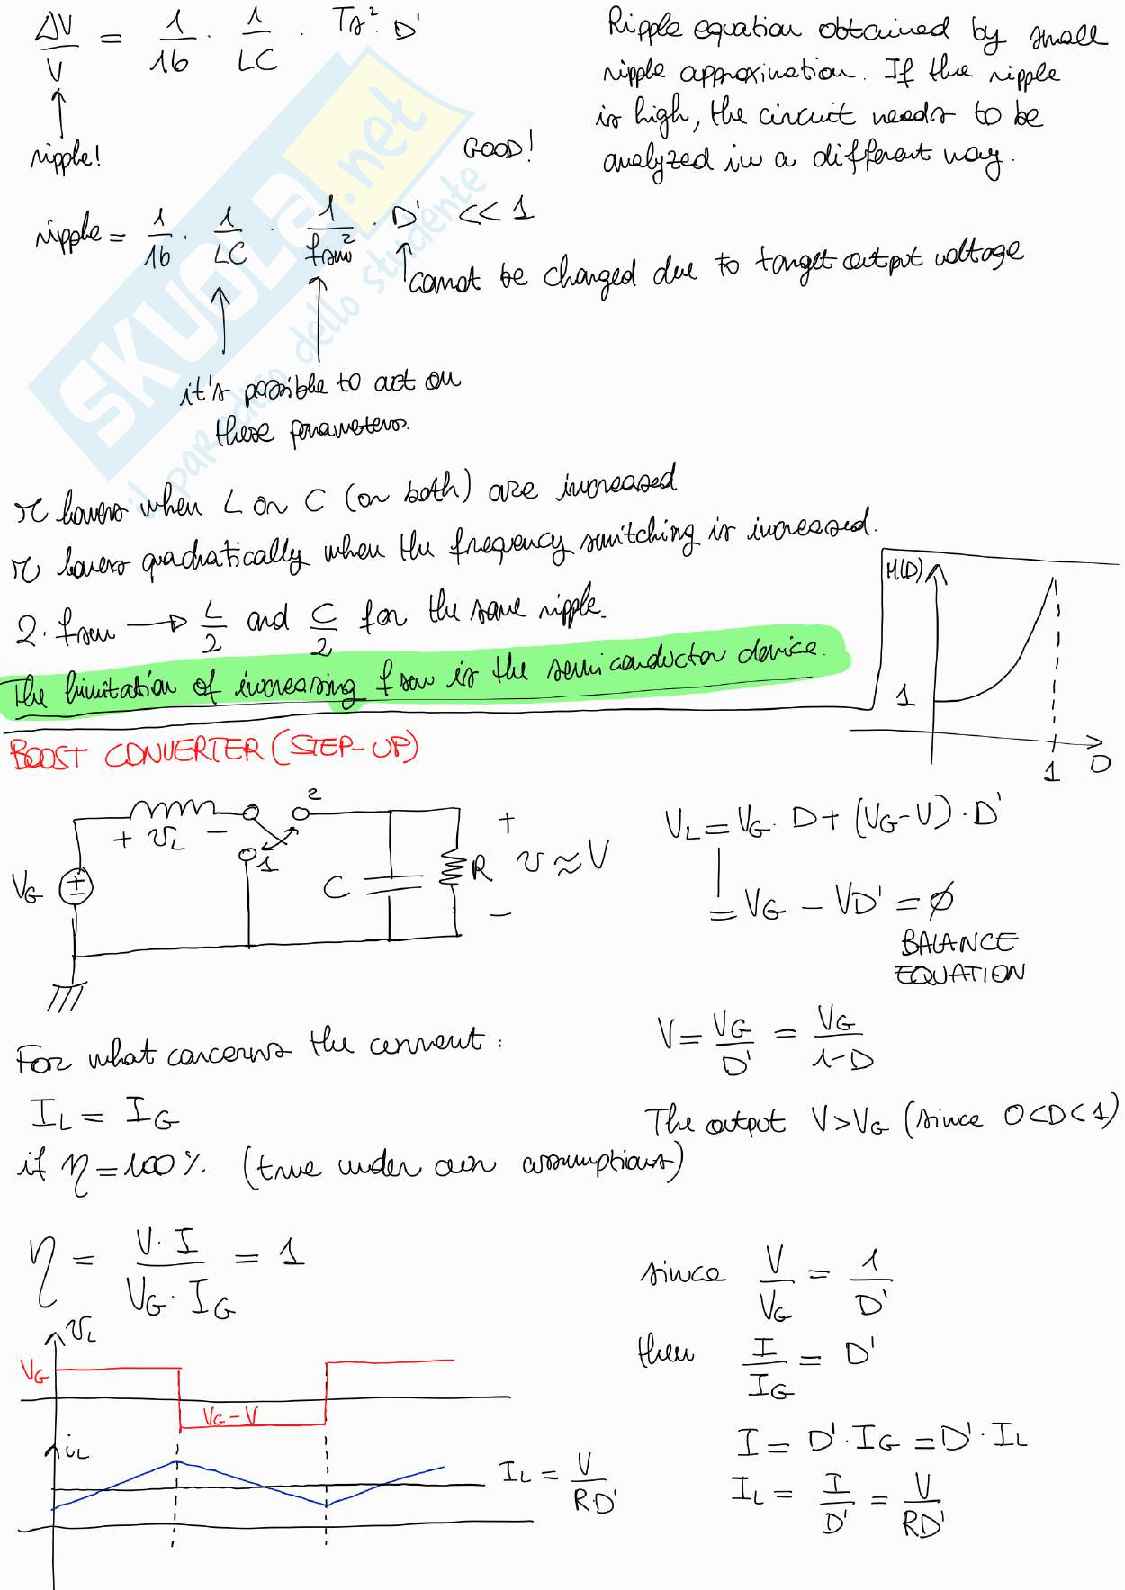 ΔV/V = 1/16 · 1/LC · Ts² · D'
ripple!
Ripple equation obtained by small
ripple approximation. If the ripple
is high, the circuit needs to be
analyzed in a different way.
GOOD!
ripple = 1/16 · 1/LC · 1/fsw² · D' << 1
cannot be changed due to target output voltage
it's possible to act on
these parameters.
SKUOLA.net
il paradiso dello studente
r lowers when L or C (or both) are increased
r lowers quadratically when the frequency switching is increased.
2·fsw → L/2 and C/2 for the same ripple.
The limitation of increasing fsw is the semiconductor device.
M(D)
1
1
D
BOOST CONVERTER (STEP-UP)
+ vL -
2
1
VG
C
R
+
v ≈ V
-
VL = VG · D + (VG - V) · D'
= VG - VD' = ∅
BALANCE
EQUATION
V = VG/D' = VG/1-D
For what concerns the current:
IL = IG
The output V > VG (since 0<D<1)
if η = 100%. (true under our assumptions)
η = V·I/VG·IG = 1
since V/VG = 1/D'
then I/IG = D'
I = D'·IG = D'·IL
IL = I/D' = V/RD'
vL
VG
VG - V
iL
IL = V/RD'